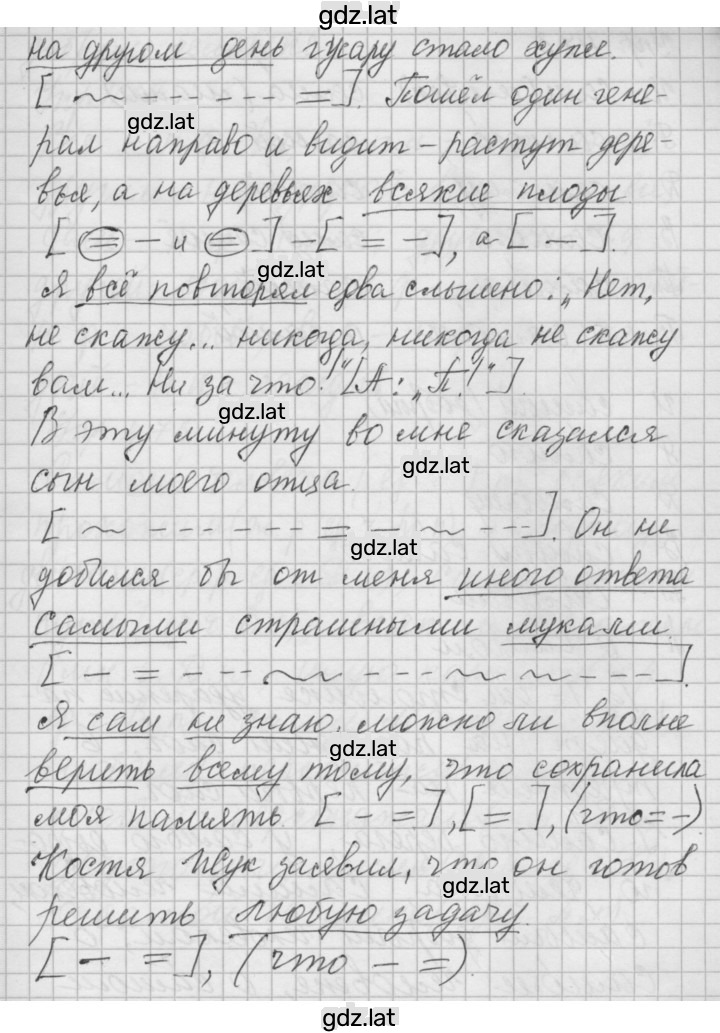 gdz.lat
на другом день гусару стало хуже.
[ ~ --- --- --- = ]. Пошёл один гене-
gdz.lat
рал направо и видит – растут дере-
вья, а на деревьях всякие плоды
[ = – и = ] – [ = – ], а [ – ].
gdz.lat
Я всё повторял едва слышно: „Нет,
не скажу... никогда, никогда не скажу
вам... Ни за что!" [А: „П!"].
gdz.lat
В эту минуту во мне сказался
gdz.lat
сын моего отца.
[ ~ --- --- = – ~ --- ]. Он не
gdz.lat
добился бы от меня иного ответа
самыми страшными муками.
[ – = --- ~ --- ~ ~ --- ].
Я сам не знаю, можно ли вполне
gdz.lat
верить всему тому, что сохранила
моя память. [ – = ], [ = ], (что = –)
Костя Жук заявил, что он готов
gdz.lat
решить любую задачу.
[ – = ], (что – =).
gdz.lat